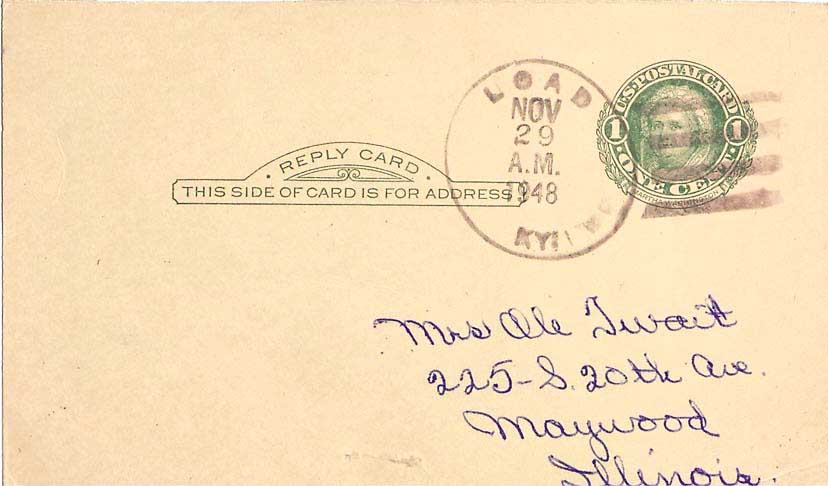 U.S. POSTAL CARD
1 1
ONE CENT
MARTHA WASHINGTON
LOAD
NOV
29
A.M.
1948
KY.
REPLY CARD
THIS SIDE OF CARD IS FOR ADDRESS
Mrs Ole Twait
225-S. 20th Ave.
Maywood
Illinois.